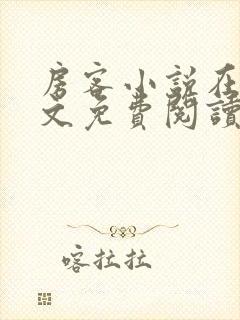 房客小说在
文免費閱讀
喀拉拉